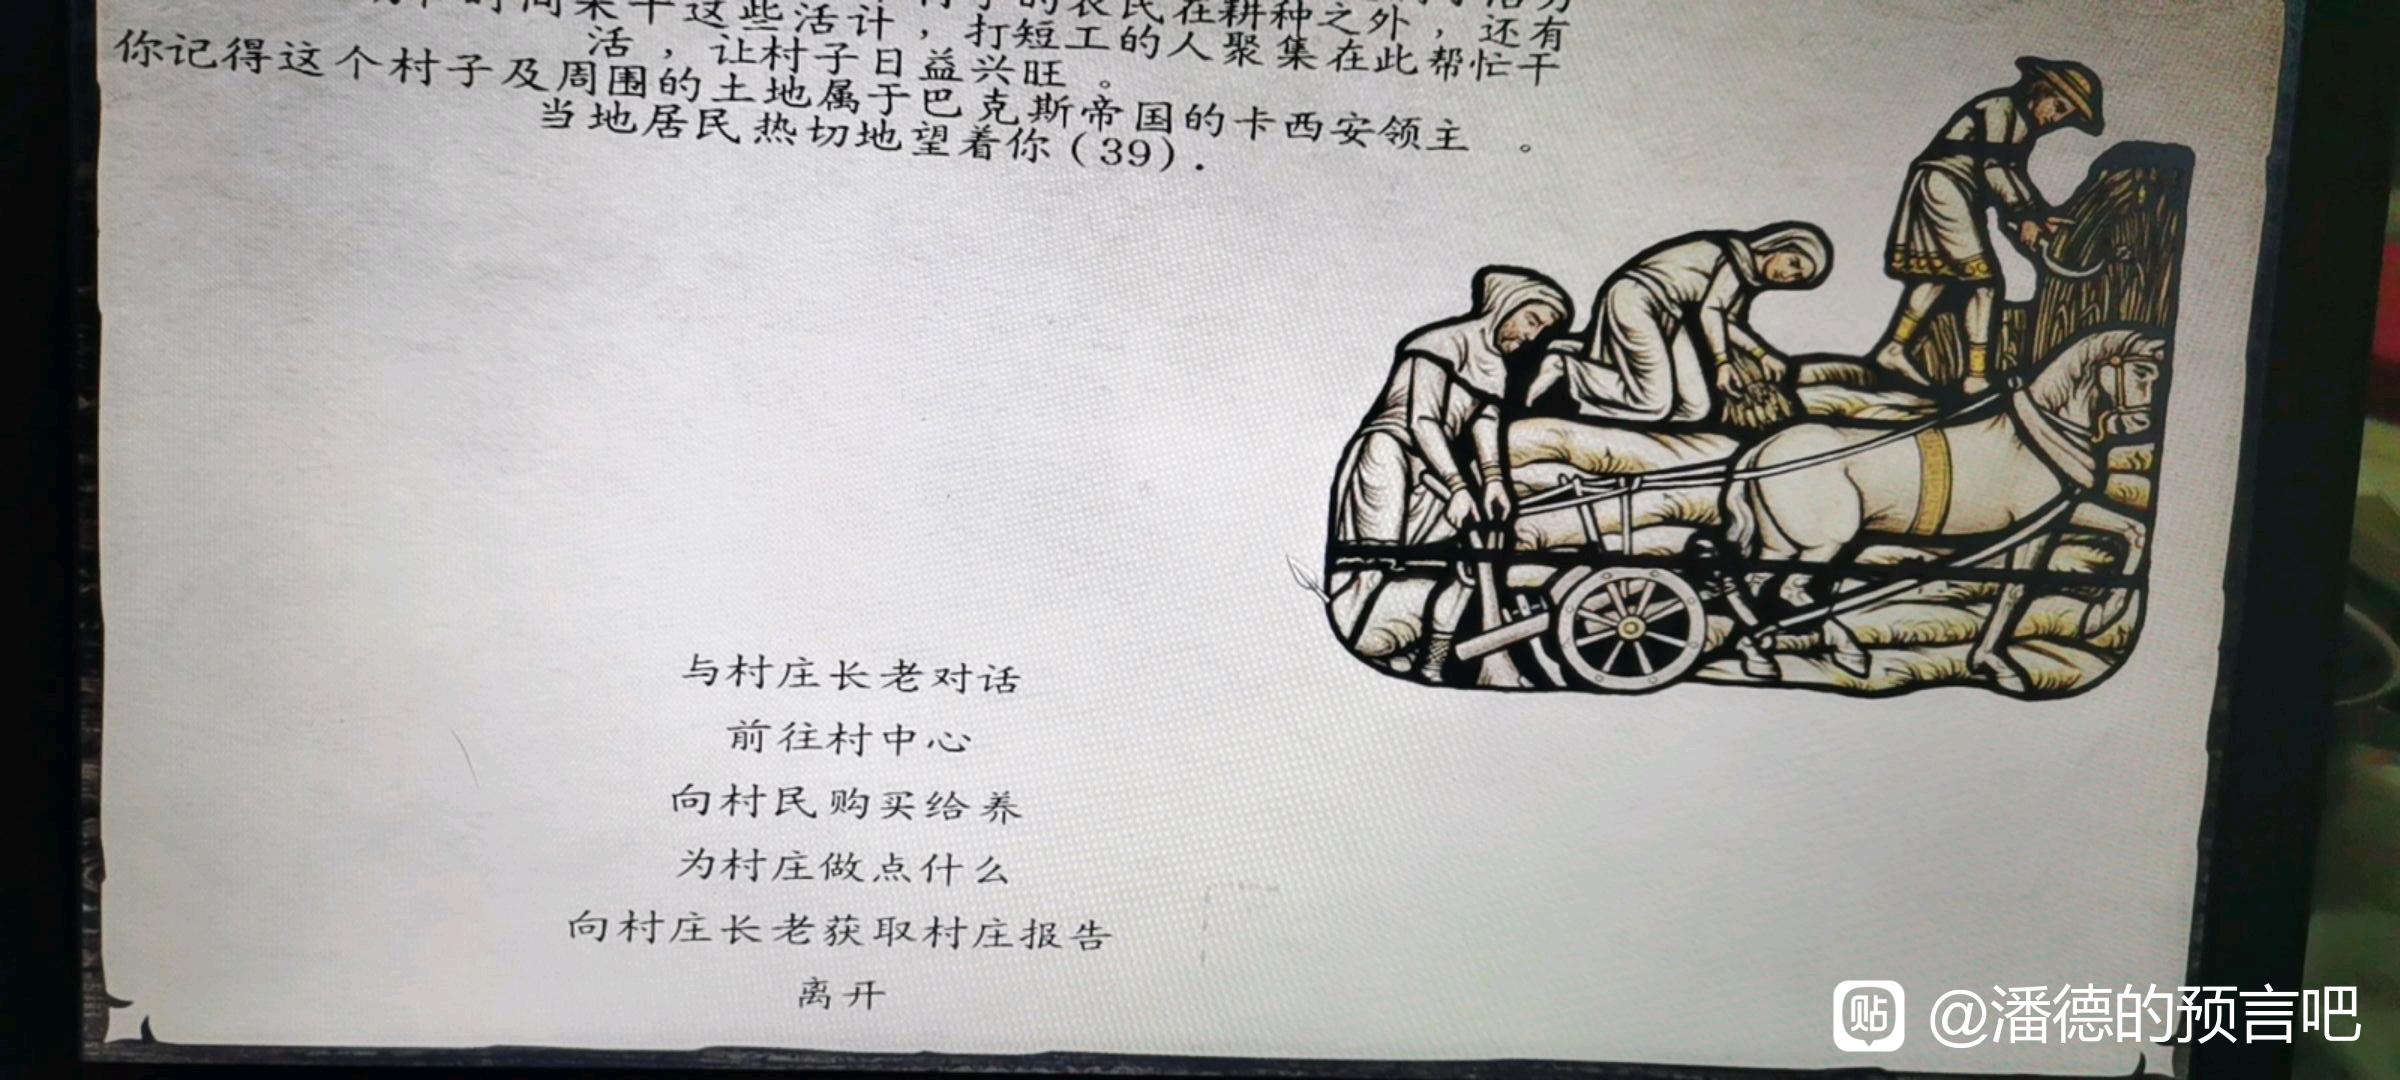 这些活计，
的农民在耕种之外，还有
活，让村子日益兴旺。打短工的人聚集在此帮忙干
你记得这个村子及周围的土地属于巴克斯帝国的卡西安领主。
当地居民热切地望着你(39).
与村庄长老对话
前往村中心
向村民购买给养
为村庄做点什么
向村庄长老获取村庄报告
离开
贴 @潘德的预言吧